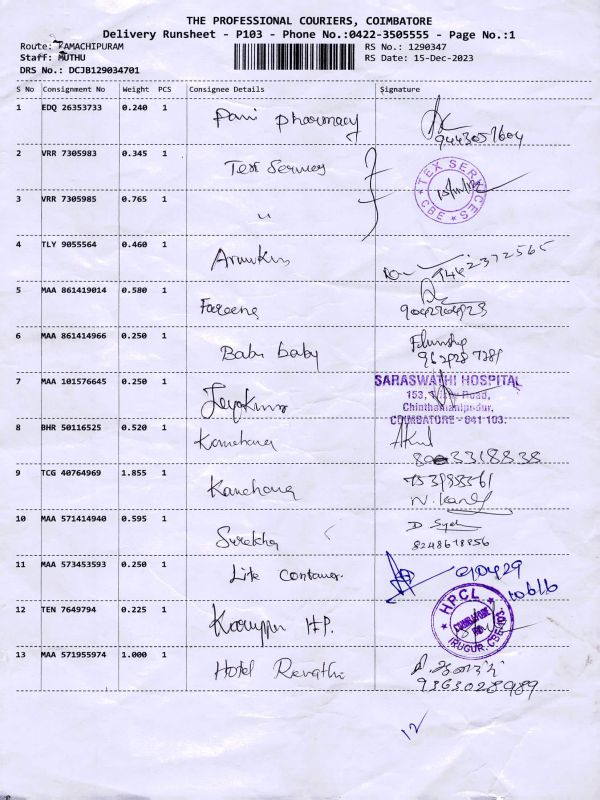 THE PROFESSIONAL COURIERS, COIMBATORE
Delivery Runsheet - P103 - Phone No.:0422-3505555 - Page No.:1
Route: RAMACHIPURAM
RS No.: 1290347
Staff: MUTHU
RS Date: 15-Dec-2023
DRS No.: DCJB129034701
S No Consignment No Weight PCS Consignee Details Signature
1 EDQ 26353733 0.240 1 Pavi pharmacy
9443057604
2 VRR 7305983 0.345 1 Tex Services
TEX SERVICES
CBE
3 VRR 7305985 0.765 1 "
4 TLY 9055564 0.460 1
5 MAA 861419014 0.580 1 Fareena
6 MAA 861414966 0.250 1 Babu baby
7 MAA 101576645 0.250 1 Jeyakum
SARASWATHI HOSPITAL
153, Road,
Chinthamanipudur,
COIMBATORE - 641 103.
8 BHR 50116525 0.520 1 Kanchana
8003318838
9 TCG 40764969 1.855 1 Kanchana
10 MAA 571414940 0.595 1 Surekha
11 MAA 573453593 0.250 1 Lite Container
12 TEN 7649794 0.225 1 Karuppu H.P.
HPCL
COIMBATORE
IRUGUR, CBE-103.
13 MAA 571955974 1.000 1 Hotel Revathi
9363028989
12